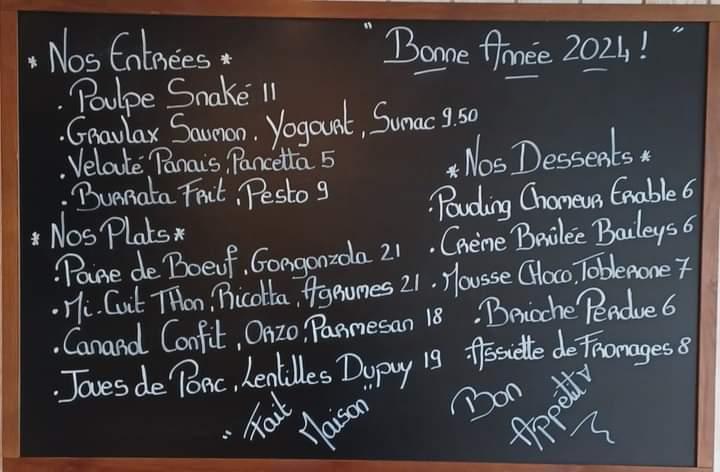 * Nos Entrées *
. Poulpe Snaké 11
. Gravlax Saumon, Yogourt, Sumac 9.50
. Velouté, Panais, Pancetta 5
. Burrata Frit, Pesto 9
* Nos Plats *
. Poire de Boeuf, Gorgonzola 21
. Mi-Cuit Thon, Ricotta, Agrumes 21
. Canard Confit, Orzo, Parmesan 18
. Joues de Porc, Lentilles Dupuy 19
"Fait Maison"
"Bonne Année 2024! "
* Nos Desserts *
. Pouding Chomeur Erable 6
. Crème Brûlée Baileys 6
. Mousse Choco, Toblerone 7
. Brioche Perdue 6
. Assiette de Fromages 8
Bon Appétit